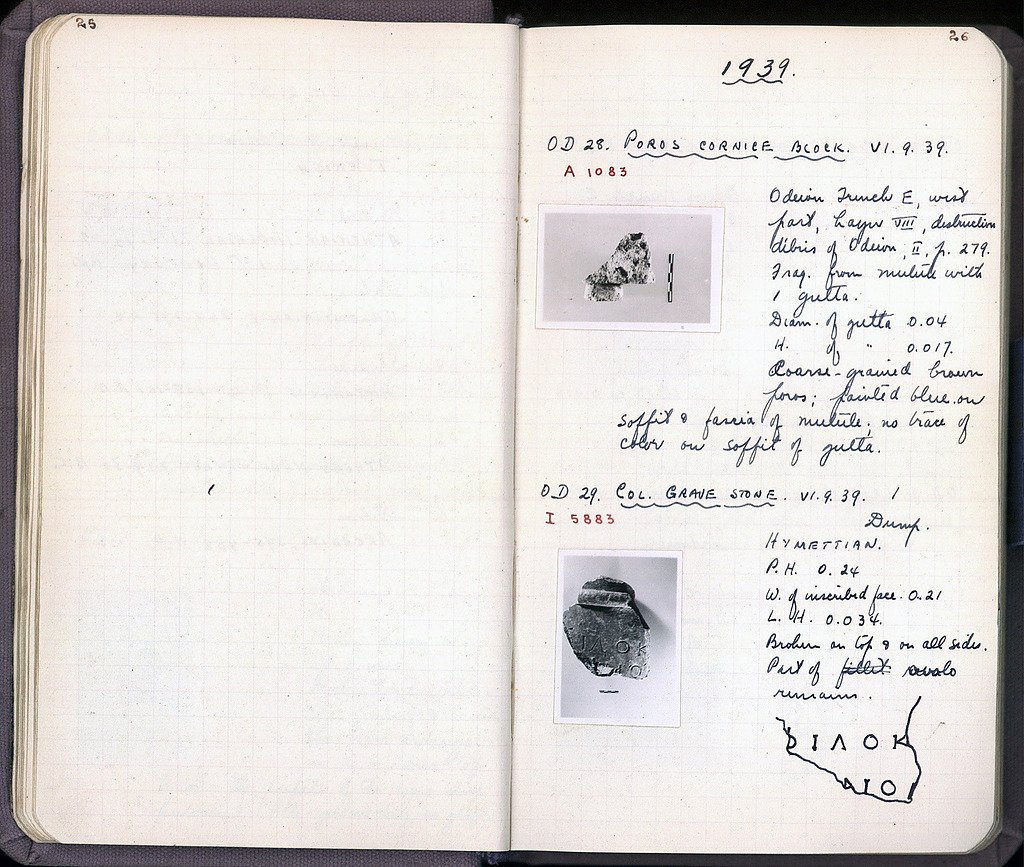 25
26
1939.
OD 28. POROS CORNICE BLOCK. VI. 9. 39.
A 1083
Odeion Trench E, west
part, Layer VIII, destruction
débris of Odeion, II, p. 279.
Frag. from mutule with
1 gutta.
Diam. of gutta 0.04
H. of " 0.017.
Coarse-grained brown
poros; painted blue on
soffit & fascia of mutule; no trace of
color on soffit of gutta.
OD 29. COL. GRAVE STONE. VI. 9. 39. 1
I 5883
Dump.
HYMETTIAN.
P. H. 0.24
W. of inscribed face. 0.21
L. H. 0.034.
Broken on top & on all sides.
Part of fillet ovalo
remains.
ΙΛΟΚ
ΙΛΟΚ
ΛΙΟΙ